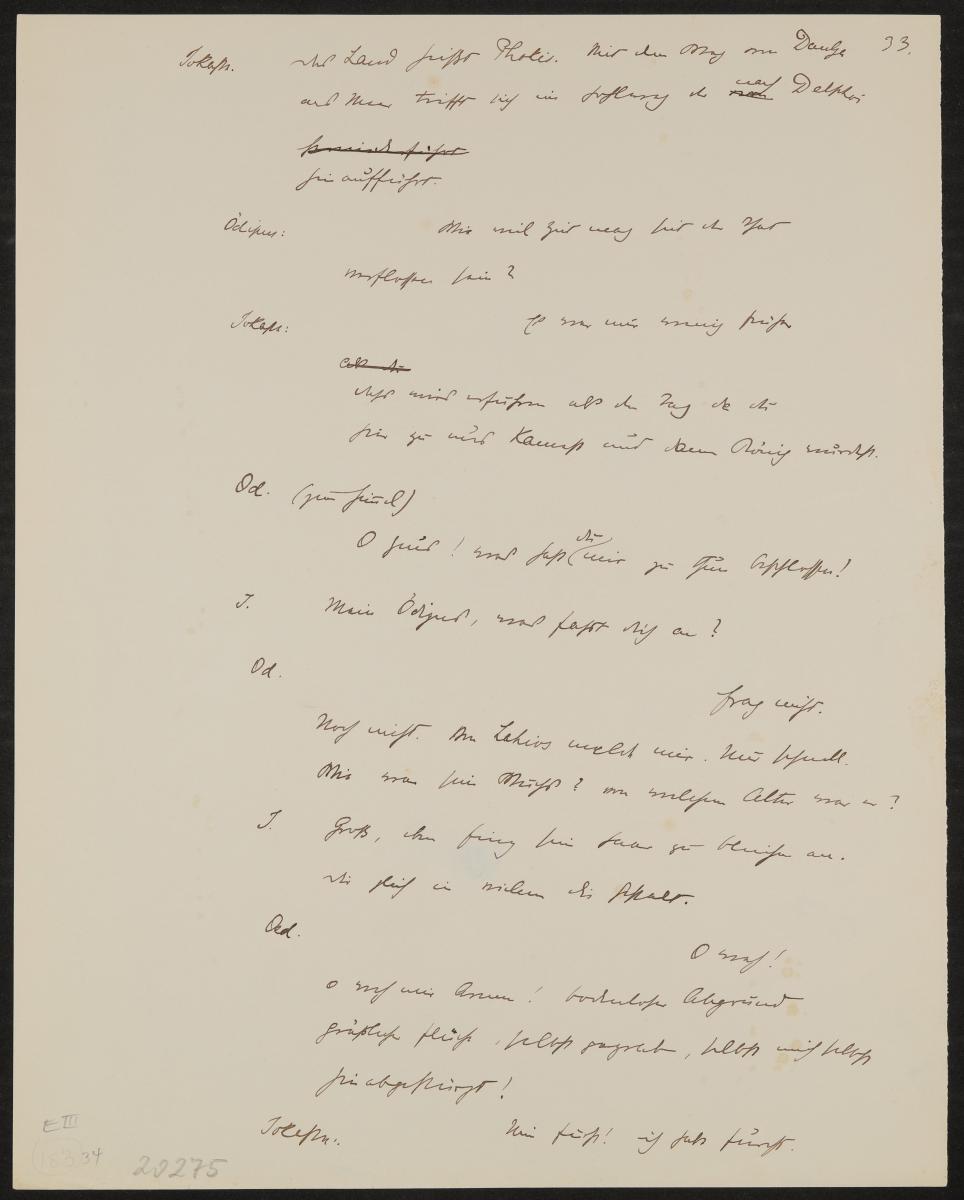 33.
Jokaste. das Land heißt Phokis. Mit dem Weg von Daulia
und Theben trifft sich im Hohlweg der nach Delphoi
hinaufführt.
Ödipus: Wie viel Zeit mag seit der That
verflossen sein?
Jokaste: Es war nur wenig früher
als die
dieß ward erfahren als der Tag da du
hier zu uns kamest und dann König wurdest.
Öd. (zum Himmel)
O Zeus! was hast du mir zu thun beschlossen!
J. Mein Ödipus, was faßt dich an?
Öd. Frag nicht.
Noch nicht. Von Laïos melde mir. Nur schnell.
Wie war sein Wuchs? von welchem Alter war er?
J. Groß, eben fing sein Haar zu bleichen an.
dir glich er in vielem die Gestalt.
Öd. O weh!
o weh mir Armen! bodenloser Abgrund
gräßlicher Flüche, selbst gegraben, selbst mich selbst
hinabgestürzt!
Jokaste: Mein Fürst! ich habe Furcht.
E III
183.34
20275